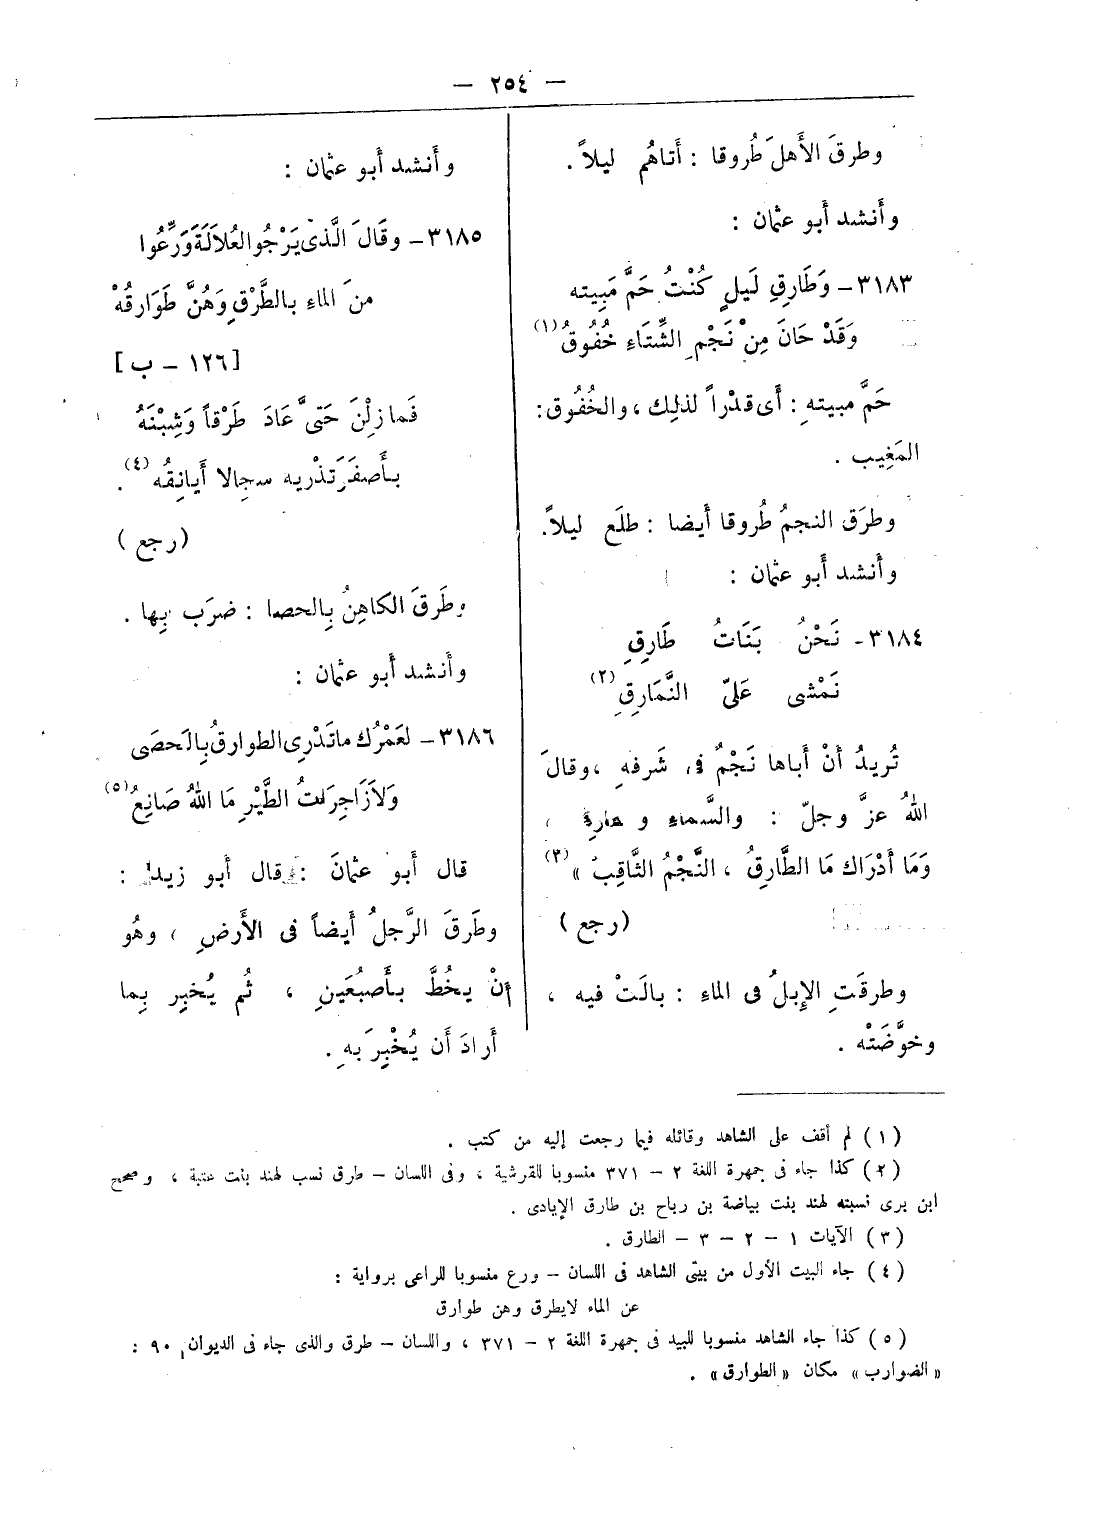 — ٢٥٤ —
وطرقَ الأَهلَ طُروقا : أَتاهُم ليلاً .
وأَنشد أَبو عثمان :
٣١٨٣ – وَطَارِقِ لَيلٍ كُنْتُ حَمَّ مَبِيته
وَقَدْ حَانَ مِنْ نَجْمِ الشِّتَاءِ خُفُوقُ (١)
حَمَّ مبيتهِ : أَى قدْراً لذلِك ، والخُفُوق :
المَغِيب .
وطرَق النجمُ طُروقا أَيضا : طلَع ليلاً .
وأَنشد أَبو عثمان :
٣١٨٤ - نَحْنُ بَنَاتُ طَارِقِ
نَمْشى عَلىّ النَّمَارِقِ (٢)
تُريدُ أَنْ أَباها نَجْمٌ فى شَرفهِ ، وقالَ
اللهُ عزَّ وجلّ : والسَّماءِ و طارق ،
وَمَا أَدْرَاك مَا الطَّارِقُ ، النَّجْمُ الثَّاقِبُ » (٣)
( رجع )
وطرقَتِ الإِبلُ فى الماءِ : بالَتْ فيه ،
وخوَّضَتْه .
وأَنشد أَبو عثمان :
٣١٨٥ – وقَالَ الَّذى يَرْجُو العُلاَلَةَ وَرِّعُوا
منَ الماءِ بالطَّرْقِ وَهُنَّ طَوَارقُهْ
[ ١٢٦ – ب ]
فَما زِلْنَ حَتىَّ عَادَ طَرْقاً وَشِبْنَهُ
بأَصفَرَ تَذْريه سجالا أَيانِقُه (٤) .
( رجع )
وطَرقَ الكاهِنُ بِالحصا : ضرَب بِها .
وأَنشد أَبو عثمان :
٣١٨٦ – لعَمْرُك ما تَدْرِى الطوارقُ بِالحَصَى
وَلاَ زَاجِرَاتُ الطَّيْرِ مَا اللهُ صَانِعُ (٥)
قال أَبو عثمانَ : قال أَبو زيد :
وطَرقَ الرَّجلُ أَيضاً فى الأَرضِ ، وهُو
أنْ يخُطَّ بأُصبُعَينِ ، ثُم يُخبِر بِما
أَرادَ أَن يُخْبِرَ بهِ .
( ١ ) لم أقف على الشاهد وقائله فيما رجعت إليه من كتب .
( ٢ ) كذا جاء فى جمهرة اللغة ٢ – ٣٧١ منسوبا للقرشية ، وفى اللسان – طرق نسب لهند بنت عتبة ، وصحح
ابن برى نسبته لهند بنت بياضة بن رباح بن طارق الإيادى .
( ٣ ) الآيات ١ – ٢ – ٣ – الطارق .
( ٤ ) جاء البيت الأول من بيتى الشاهد فى اللسان – ورع منسوبا للراعى برواية :
عن الماء لايطرق وهن طوارق
( ٥ ) كذا جاء الشاهد منسوبا للبيد فى جمهرة اللغة ٢ – ٣٧١ ، واللسان – طرق والذى جاء فى الديوان ٩٠ :
« الضوارب » مكان « الطوارق » .